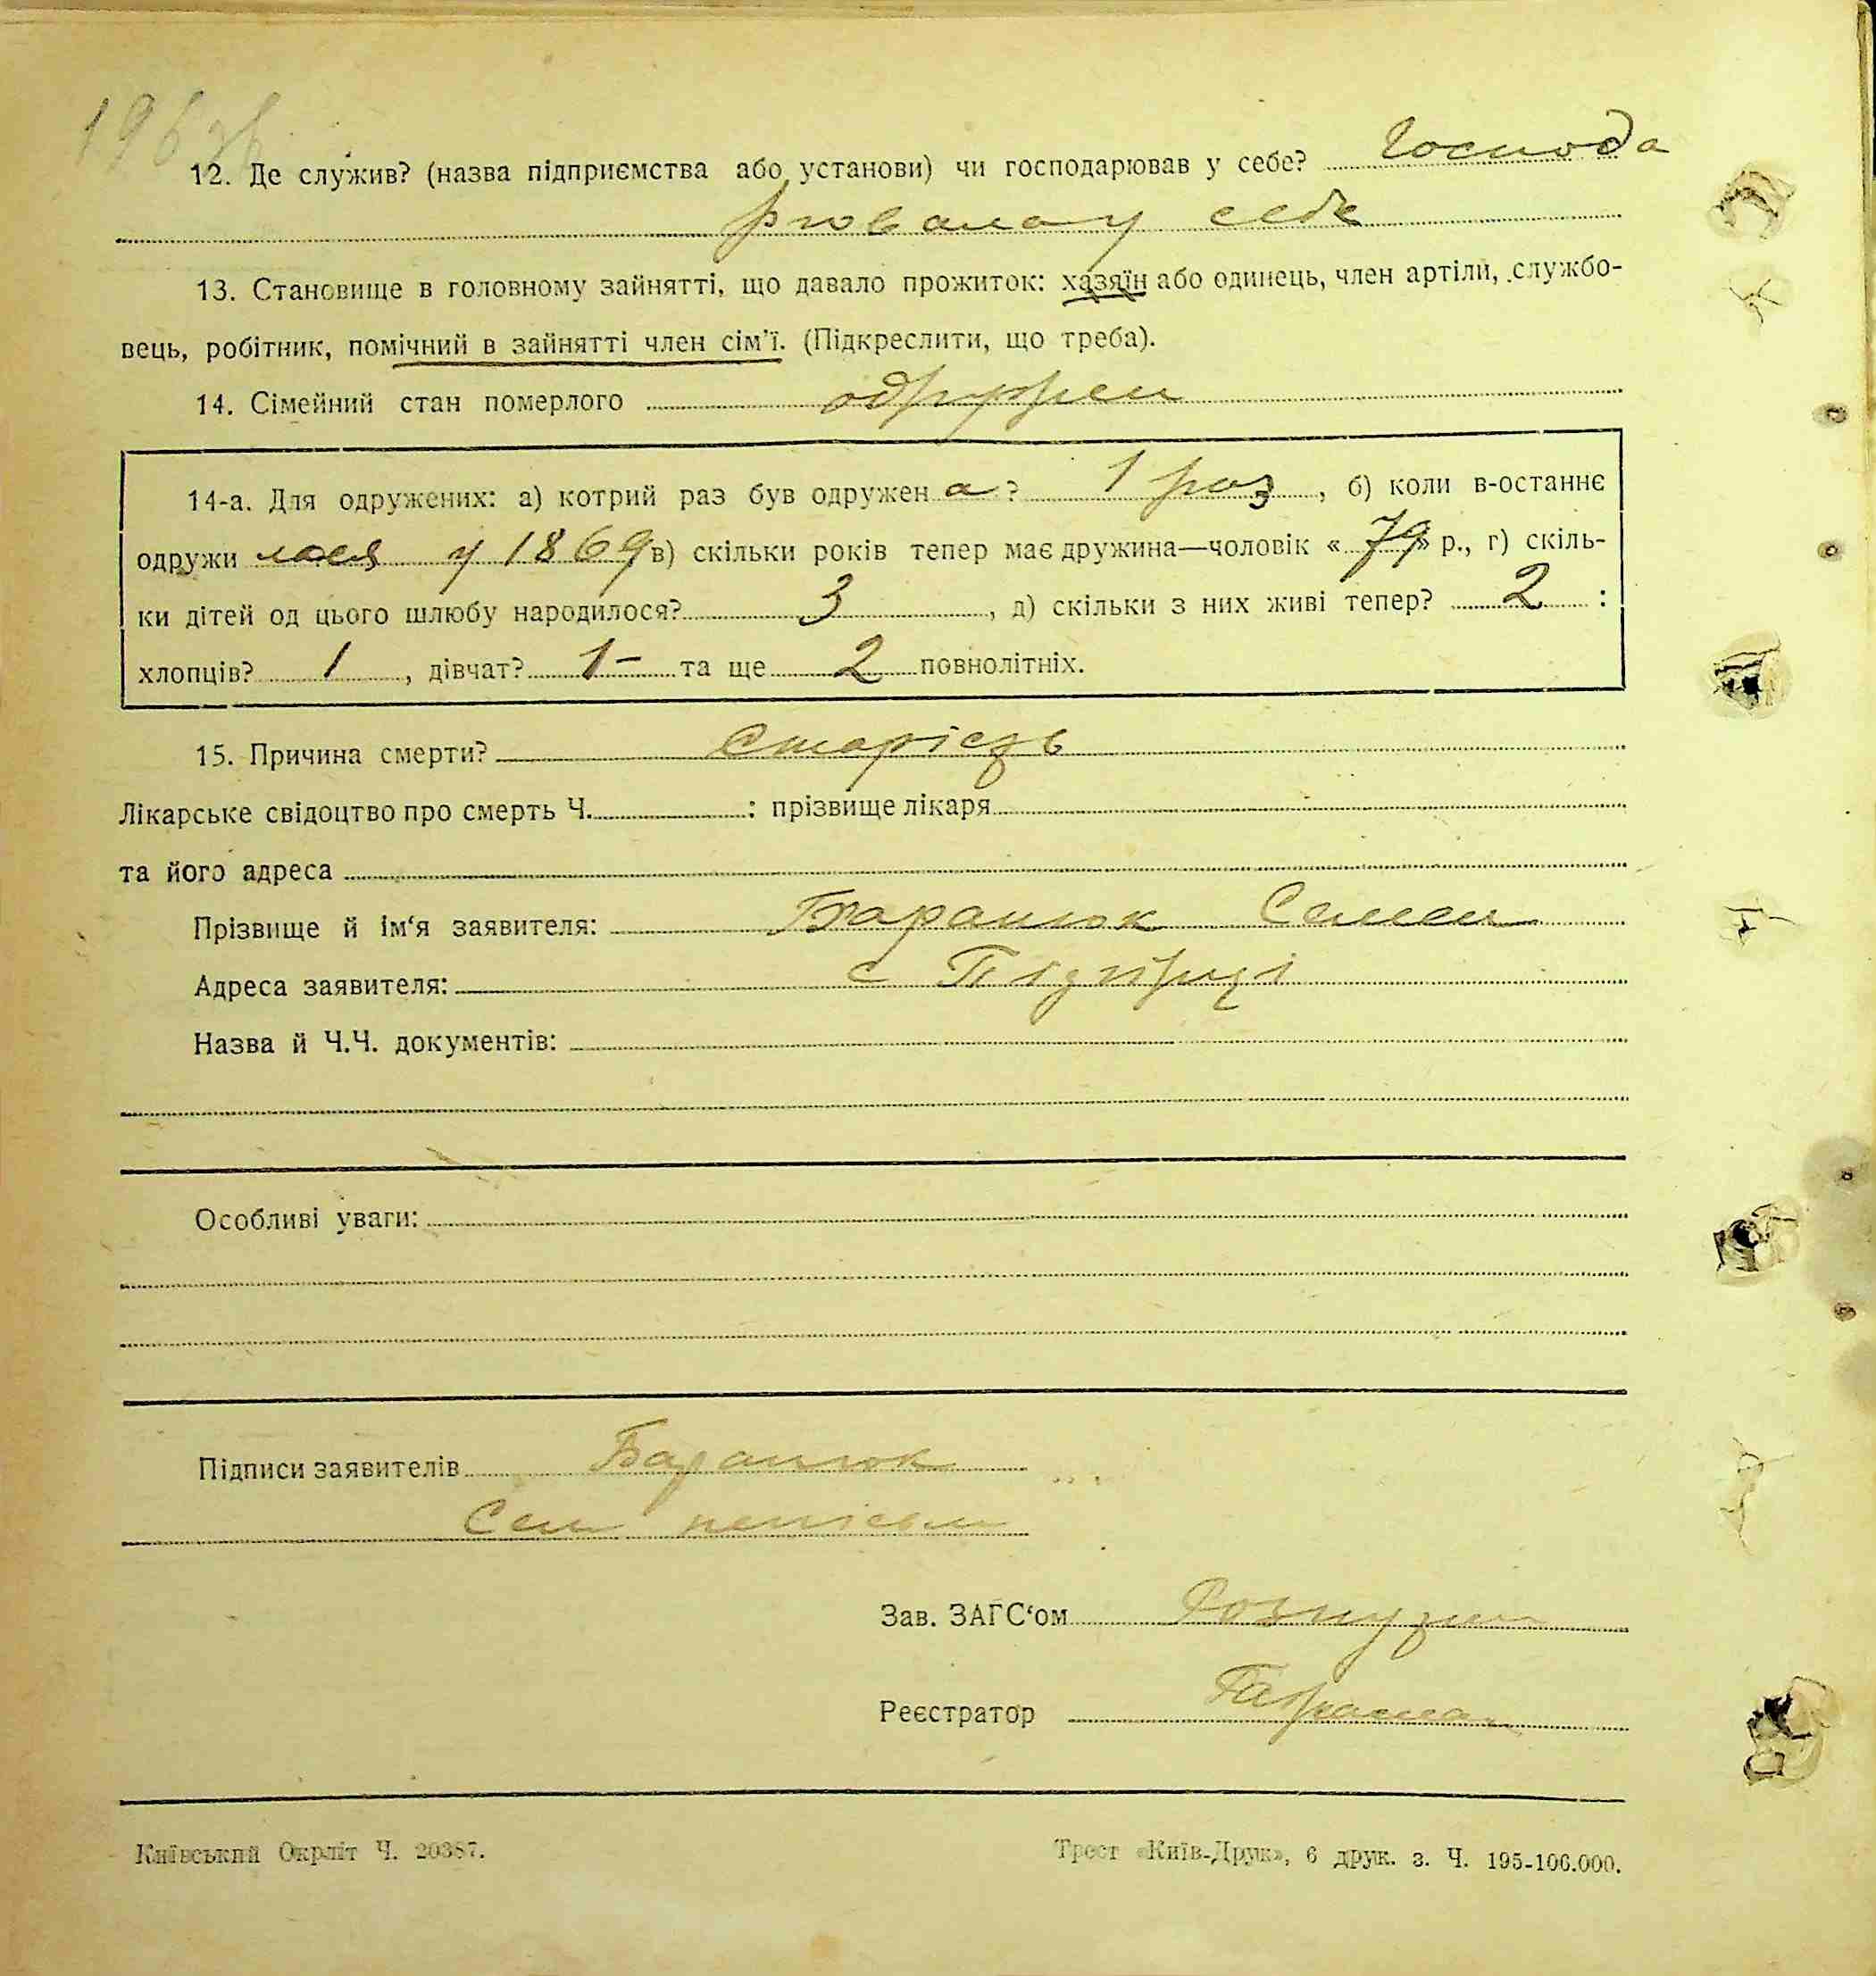 196зв
12. Де служив? (назва підприємства або установи) чи господарював у себе? Господа
рювала у себе
13. Становище в головному зайнятті, що давало прожиток: хазяїн або одинець, член артіли, службо-
вець, робітник, помічний в зайнятті член сім'ї. (Підкреслити, що треба).
14. Сімейний стан померлого одружен
14-а. Для одружених: а) котрий раз був одружен а? 1 раз, б) коли в-останнє
одружи лася у 1869 в) скільки років тепер має дружина—чоловік «79» р., г) скіль-
ки дітей од цього шлюбу народилося? 3, д) скільки з них живі тепер? 2 :
хлопців? 1, дівчат? 1- та ще 2 повнолітніх.
15. Причина смерти? Старість
Лікарське свідоцтво про смерть Ч. : прізвище лікаря
та його адреса
Прізвище й ім‘я заявителя: Баранюк Семен
Адреса заявителя: с Підгірці
Назва й Ч.Ч. документів:
Особливі уваги:
Підписи заявителів Баранюк
Сем неписьм
Зав. ЗАГС‘ом
Реєстратор
Київський Окрліт Ч. 20387.
Трест «Київ-Друк», 6 друк. з. Ч. 195-100.000.